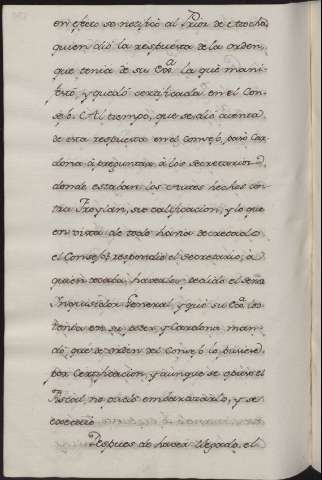 en efeto se notificò al Prior de Atocha,
quien diò la respuesta de la orden,
que tenia de su Exa. la que mani-
festò, y quedò certificada en el Con-
sejo. Al tiempo, que se diò cuenta
de esta respuesta en el Consejo, pasò Car-
dona à preguntar à los Secretarios
donde estaban los autos hechos con-
tra Froylan, su calificacion, y lo que
en vista de todo havia decretado
el Consejo? respondiò el Secretario, à
quien tocaba, haverlos pedido el señor
Inquisidor General, y que su Exa. los
tenia en su poder, y Cardona man-
dò, que de orden del Consejo lo pusiese
por Certificacion, y aunque se opuso el
Fiscal no pudo embarazarlo, y se
executò
Despues de haver llegado el